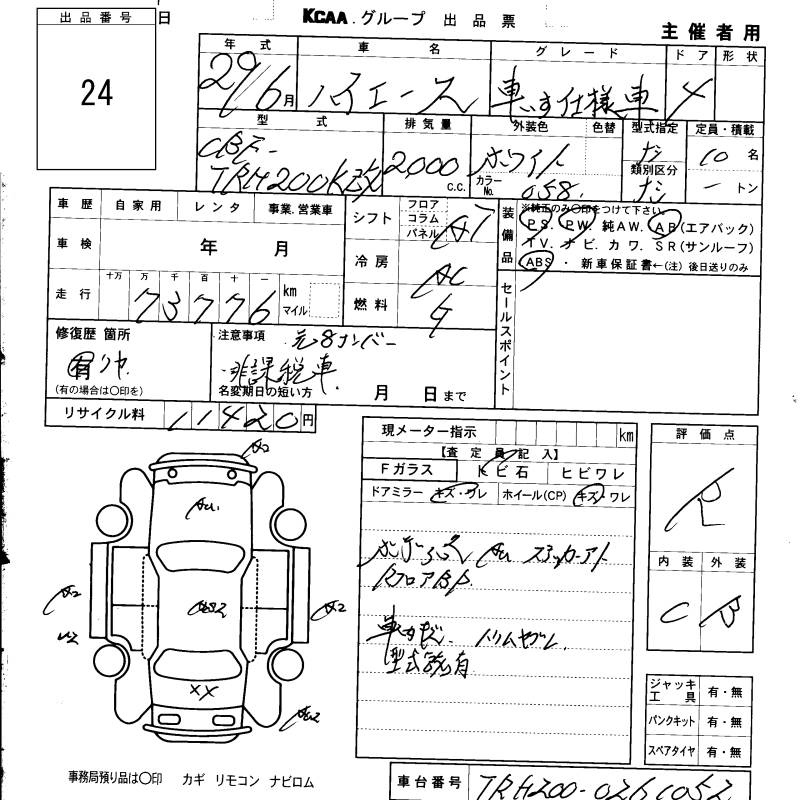 出品番号
日
KCAA.グループ 出品票
主催者用
24
年式 車名 グレード ドア 形状
29/6月 ハイエース 車いす仕様車 4
型式 排気量 外装色 色替 型式指定 定員・積載
CBF-
TRH200K改 2,000 C.C. ホワイト カラーNo. 058 ナシ 類別区分 ナシ 10名 ートン
車歴 自家用 レンタ 事業.営業車
シフト フロア コラム パネル AT
装備品 ※純正のみ〇印をつけて下さい。
PS. PW. 純AW. AB(エアバック)
TV. ナビ. カワ. SR(サンルーフ)
ABS ・ 新車保証書←(注) 後日送りのみ
車検 年 月
冷房 AC
走行 十万 万 千 百 十 一
73776 km マイル
燃料 G
セールスポイント
修復歴 箇所
有
(有の場合は〇印を)
注意事項 元8ナンバー
非課税車
名変期日の短い方 月 日まで
リサイクル料 11420円
現メーター指示 km
【査定員記入】
Fガラス トビ石 ヒビワレ
ドアミラー キズ・ワレ ホイール(CP) キズ・ワレ
評価点
R
内装 外装
C B
A2
AU
A2
A2
XX
トリムキレ.
ジャッキ工具 有・無
パンクキット 有・無
スペアタイヤ 有・無
事務局預り品は〇印 カギ リモコン ナビロム
車台番号 TRH200-0261052